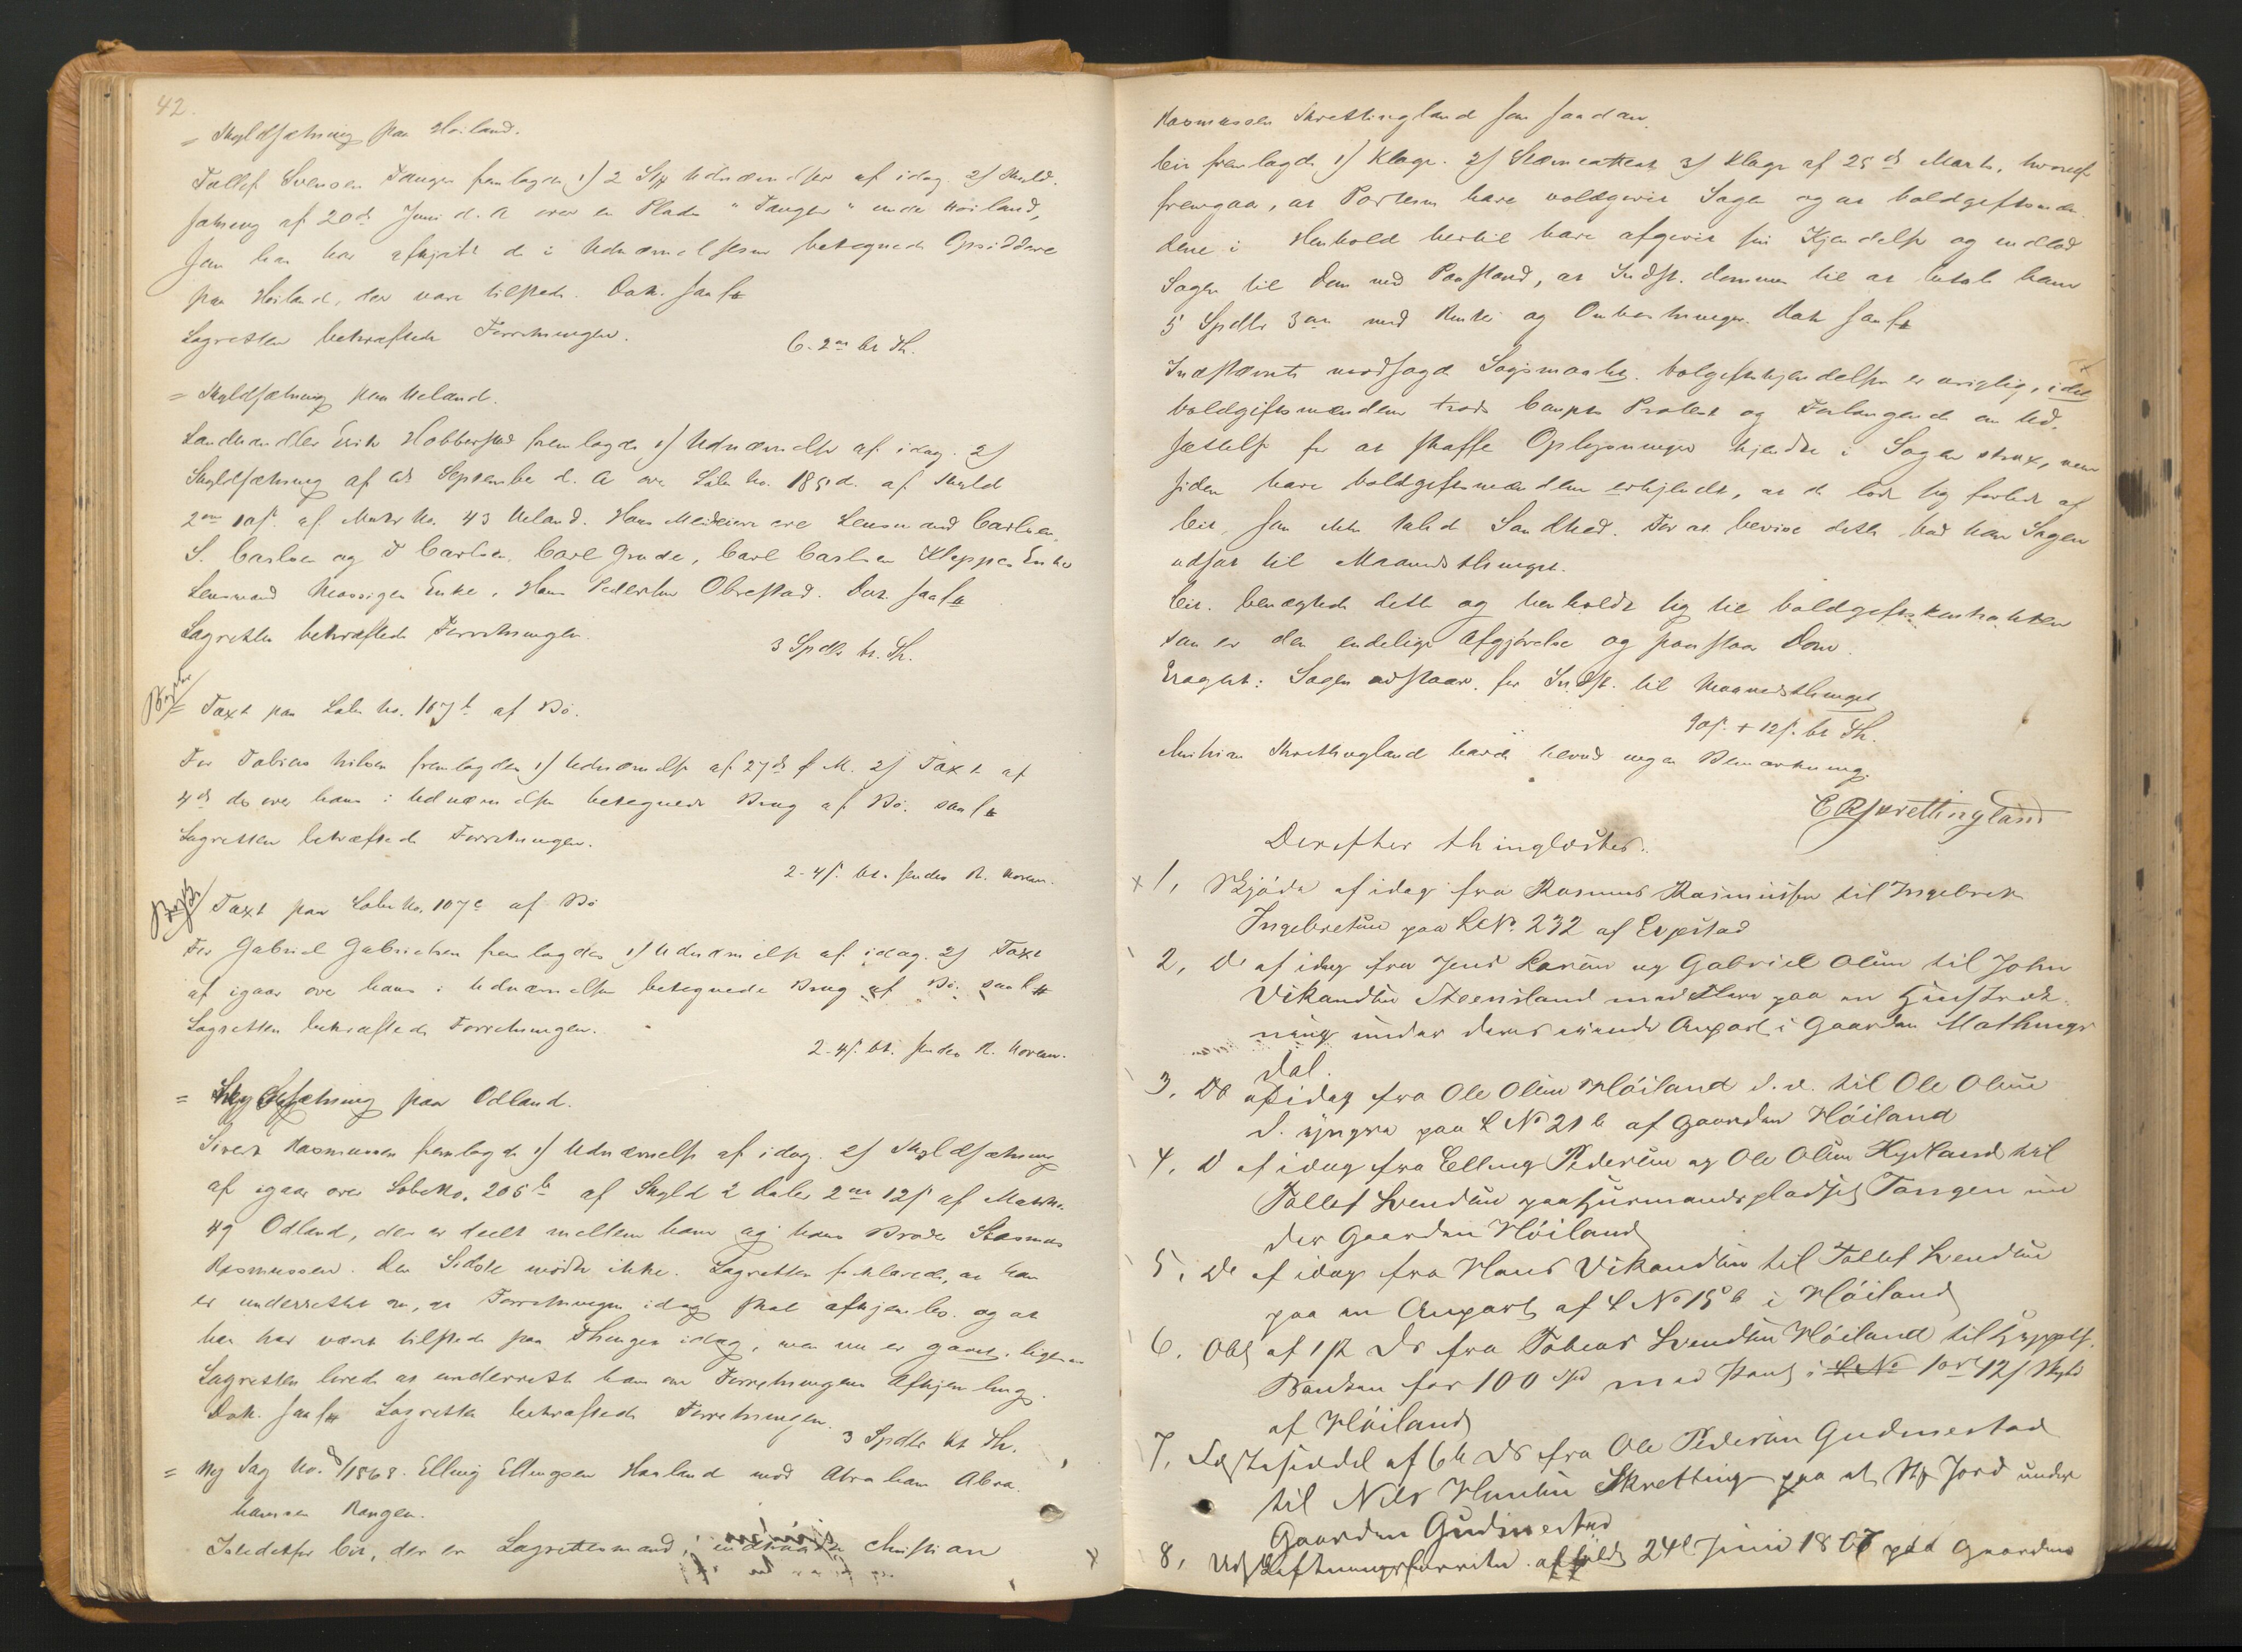 42.
= Skyldsætning paa Høiland.
Tollef Svensen Tangen fremlagde 1) 2 Stk Udnævnelser af idag. 2) Skyld-
sætning af 20de Juni d. A over en Plads "Tangen" under Høiland,
som han har afkjøbt de i Udnævnelserne betegnede Opsiddere
paa Høiland, der vare tilstede. Dok. saal.
Lagretten bekræftede Forretningen.
6. 2 ort bt Th.
= Skyldsætning paa Ueland.
Landhandler Erik Hobberstad fremlagde 1) Udnævnelse af idag. 2)
Skyldsætning af September d. A over Løbe No. 185d. af Skyld
2 ort 10 s. af Matr No. 43 Ueland. Hans Meieiere ere Lensmand Carlsen,
S. Carlsen og T Carlsen, Carl Grude, Carl Carlsen Kleppes Enke
Lensmand Enke, Hans Pedersen Obrestad. Dok. saal.
Lagretten bekræftede Forretningen.
3 Spdlr bt. Th.
= Taxt paa Løbe No. 107b af Bø.
For Tobias Nilsen fremlagdes 1) Udnævnelse af 27de f. M. 2) Taxt af
4de ds over hans i Udnævnelsen betegnede Brug af Bø. saal.
Lagretten bekræftede Forretningen.
2-4 s. bt. sendes
Taxt paa Løbe No. 107c af Bø
For Gabriel Gabrielsen fremlagdes 1) Udnævnelse af idag. 2) Taxt
af igaar over hans i Udnævnelsen betegnede Brug af Bø. saal.
Lagretten bekræftede Forretningen.
2-4 s. bt. sendes
= Skyldsætning paa Odland.
Sivert Rasmussen fremlagde 1) Udnævnelse af idag. 2) Skyldsætning
af igaar over Løbe No. 205b af Skyld 2 daler 2 ort 12 s af Matr No.
49 Odland, der er deelt mellem ham og hans Broder Rasmus
Rasmussen. Den Sidste mødte ikke. Lagretten forklarede, at han
er underrettet om, at Forretningen idag skal afhjemles og at
han har været tilstede paa Thinget idag, men nu er gaaet, ligesom
Lagretten lovede at underrette ham om Forretningens Afhjemling.
Dok. saal. Lagretten bekræftede Forretningen.
3 Spdlr bt Th.
= Ny Sag No. 8/1868. Elling Ellingsen Haaland mod Abraham Abra-
hamsen Rangen.
Istedetfor Cit, der er Lagrettesmand, indtraadte Christian
Rasmussen Skrettingland som saadan.
Cit fremlagde 1) Klage. 2) Stævneattest 3) Klage af 25de Marts, hvoraf
fremgaar, at Parterne have voldgivet Sagen og at Voldgiftsmæn-
dene i Henhold hertil have afgivet sin Kjendelse og indlod
Sagen til Dom med Paastand, at Indst. dømmes til at betale ham
5 Spdlr 3 ort med Renter og Omkostninger. Dok saal.
Indstævnte modsagde Søgsmaalet. Volgiftskjendelsen er urigtig, idet
Voldgiftsmændene trods Comptes Protest og Forlangende om Ud-
sættelse for at skaffe Oplysninger kjendte i Sagen strax, men
siden have Voldgiftsmændene erkjendt, at de lode sig forlede af
Cit, som ikke talede Sandhed. For at bevise dette, bad han Sagen
udsat til Maanedsthinget.
Cit. benægtede dette og henholdt sig til Voldgiftskontrakten
som er den endelige Afgjørelse og paastaar Dom.
Eragtet: Sagen udstaar for Indst. til Maanedsthinget
90 s. + 12 s. bt Th.
Christian Skrettingland havde herved ingen Bemærkning.
C R Skrettingland
Derefter thinglæstes.
1, Skjøde af idag fra Rasmus Rasmussen til Ingebret
Ingebretsen paa LNo. 232 af Erpstad
2, Do af idag fra Jens Larsen og Gabriel Olsen til John
Vikandsen Steensland med Flere paa en Huustræk-
ning under deres eiende Anpart i Gaarden Mathings
dal.
3, Do af idag fra Ole Olsen Høiland d. æ. til Ole Olsen
d. yngre paa L No 21b af Gaarden Høiland
4, D af idag fra Elling Pedersen og Ole Olsen Høiland til
Tollef Svendsen paa Huusmandspladsen Tangen un
der Gaarden Høiland
5, Do af idag fra Hans Vikandsen til Tollef Svendsen
paa en Anpart af L No 15b i Høiland
6. Obl af 1ste Ds fra Tobias Svendsen Høiland til Hypoth.
Banken for 100 Spd med Pant i L No 1 ort 12 s Skyld
af Høiland
7, Fæsteseddel af 6te Ds fra Ole Pedersen Gudmestad
til Nils Skretting paa et Stk Jord under
Gaarden Gudmestad
8, Udskiftningsforretn. afholdt 24de Juni 1867 paa Gaardene